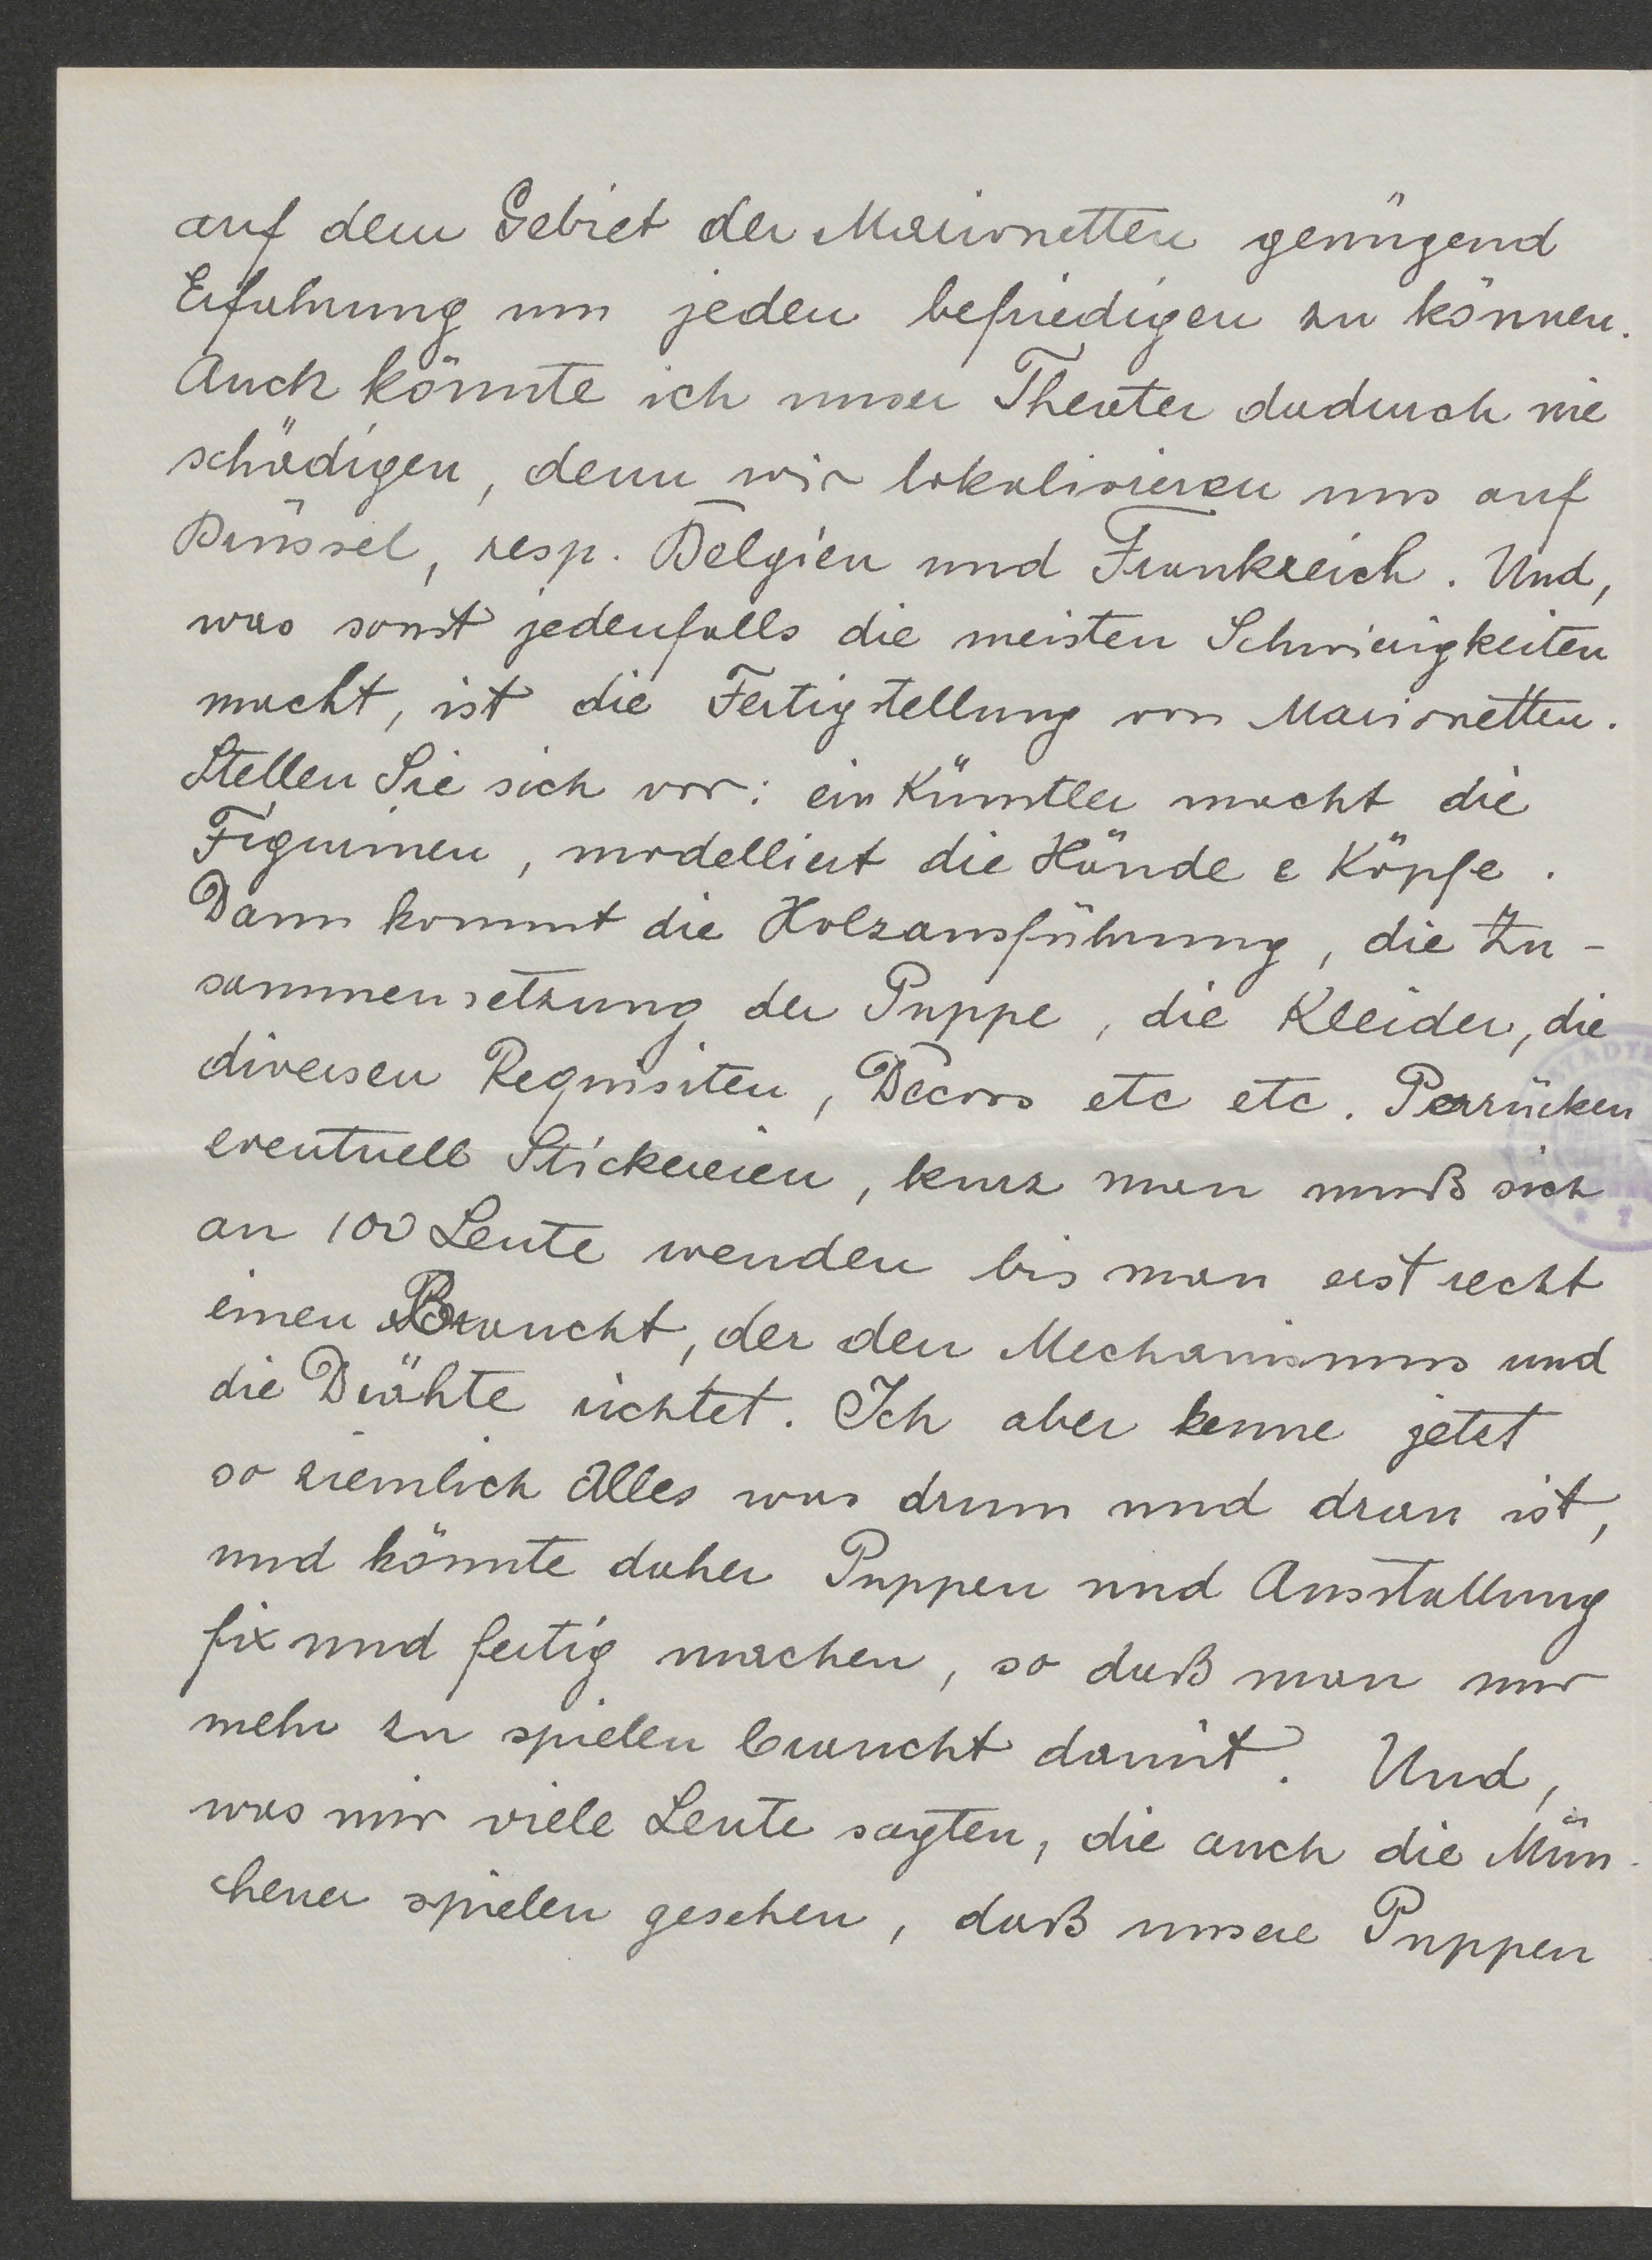 auf dem Gebiet der Marionetten genügend
Erfahrung um jeden befriedigen zu können.
Auch könnte ich unser Theater dadurch nie
schädigen, denn wir lokalisieren uns auf
Brüssel, resp. Belgien und Frankreich. Und,
was sonst jedenfalls die meisten Schwierigkeiten
macht, ist die Fertigstellung von Marionetten.
Stellen Sie sich vor: ein Künstler macht die
Figurinen, modelliert die Hände & Köpfe.
Dann kommt die Holzausführung, die Zu-
sammensetzung der Puppe, die Kleider, die
diversen Requisiten, Décors etc etc. Perrücken
eventuell Stickereien, kurz man muß sich
an 100 Leute wenden bis man erst recht
einen Braucht, der den Mechanismus und
die Drähte richtet. Ich aber kenne jetzt
so ziemlich Alles was drum und dran ist,
und könnte daher Puppen und Ausstattung
fix und fertig machen, so daß man nur
mehr zu spielen braucht damit. Und,
was mir viele Leute sagten, die auch die Mün-
chener spielen gesehen, daß unsere Puppen
STADT